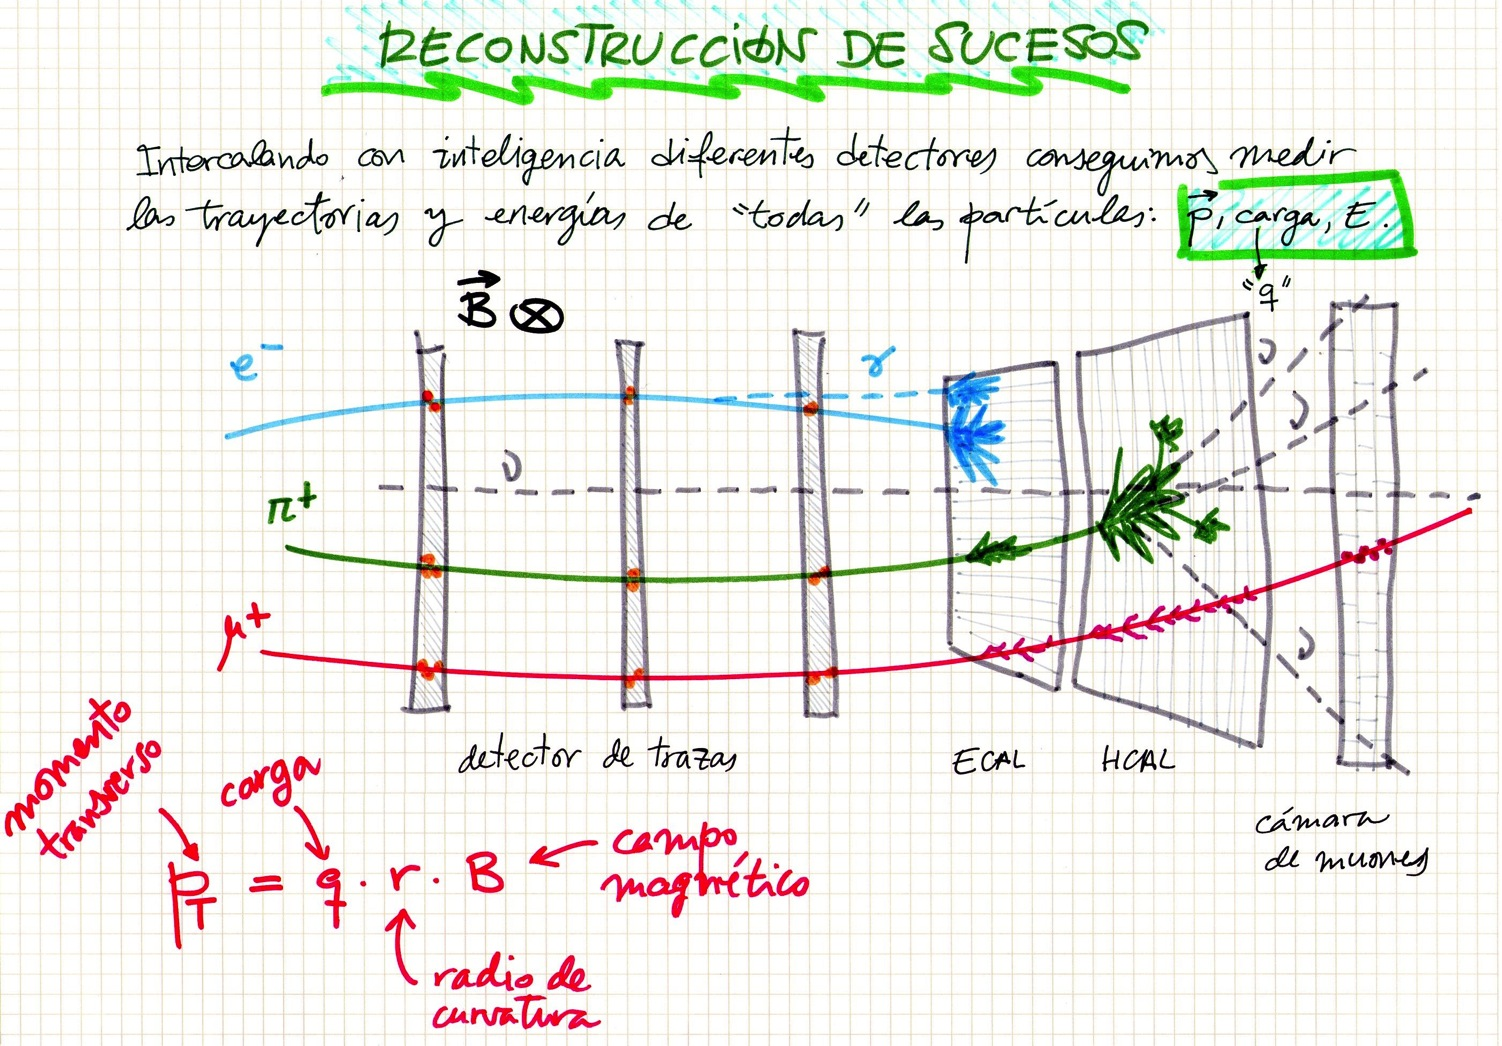 RECONSTRUCCIÓN DE SUCESOS
Intercalando con inteligencia diferentes detectores conseguimos medir
las trayectorias y energías de "todas" las partículas: p⃗, carga, E.
"q"
B⃗ ⊗
e⁻
γ
ν
ν
ν
π⁺
μ⁺
ν
detector de trazas
ECAL
HCAL
cámara
de muones
momento
transverso
carga
campo
magnético
p_T = q · r · B
radio de
curvatura